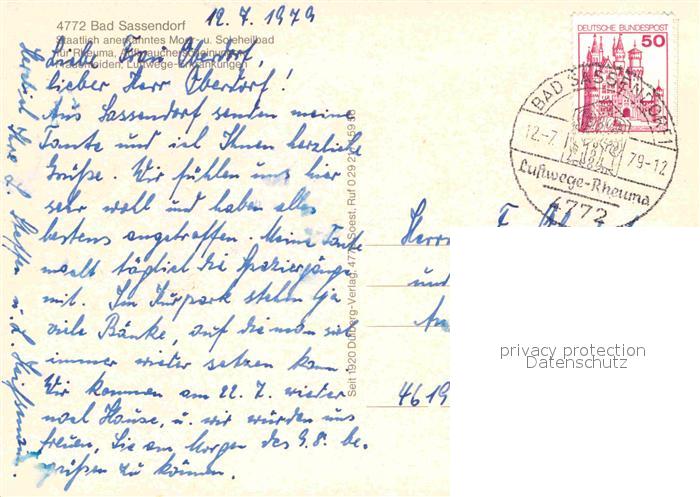 12.7.1979
4772 Bad Sassendorf
Staatlich anerkanntes Moor- u. Soleheilbad
für Rheuma, Aufbraucherscheinungen,
Frauenleiden, Luftwege-Erkrankungen
Liebe Frau Oberdorf,
lieber Herr Oberdorf!
Aus Sassendorf senden meine
Tante und ich Ihnen herzliche
Grüße. Wir fühlen uns hier
sehr wohl und haben alles
bestens angetroffen. Meine Tante
macht täglich die Spaziergänge
mit. Im Kurpark stehen ja
viele Bänke, auf die man sich
immer wieder setzen kann.
Wir kommen am 22.7. wieder
nach Hause, u. wir würden uns
freuen, Sie am Morgen des 9.8. be-
grüßen zu können.
Herzlich Ihre L. Steffen u. L.
Seit 1920 Dülberg-Verlag, 477 Soest, Ruf 0 29 21 / 1 59 56
DEUTSCHE BUNDESPOST
50
BAD SASSENDORF 1
12.-7.
79-12
Luftwege-Rheuma
4772
Herrn
und
4619
privacy protection
Datenschutz